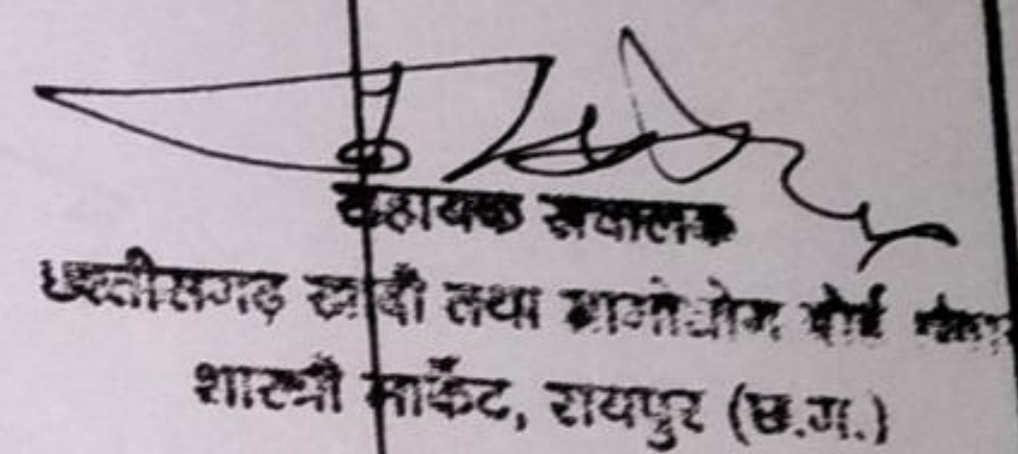 सहायक संचालक
छत्तीसगढ़ खादी तथा ग्रामोद्योग बोर्ड
शास्त्री मार्केट, रायपुर (छ.ग.)